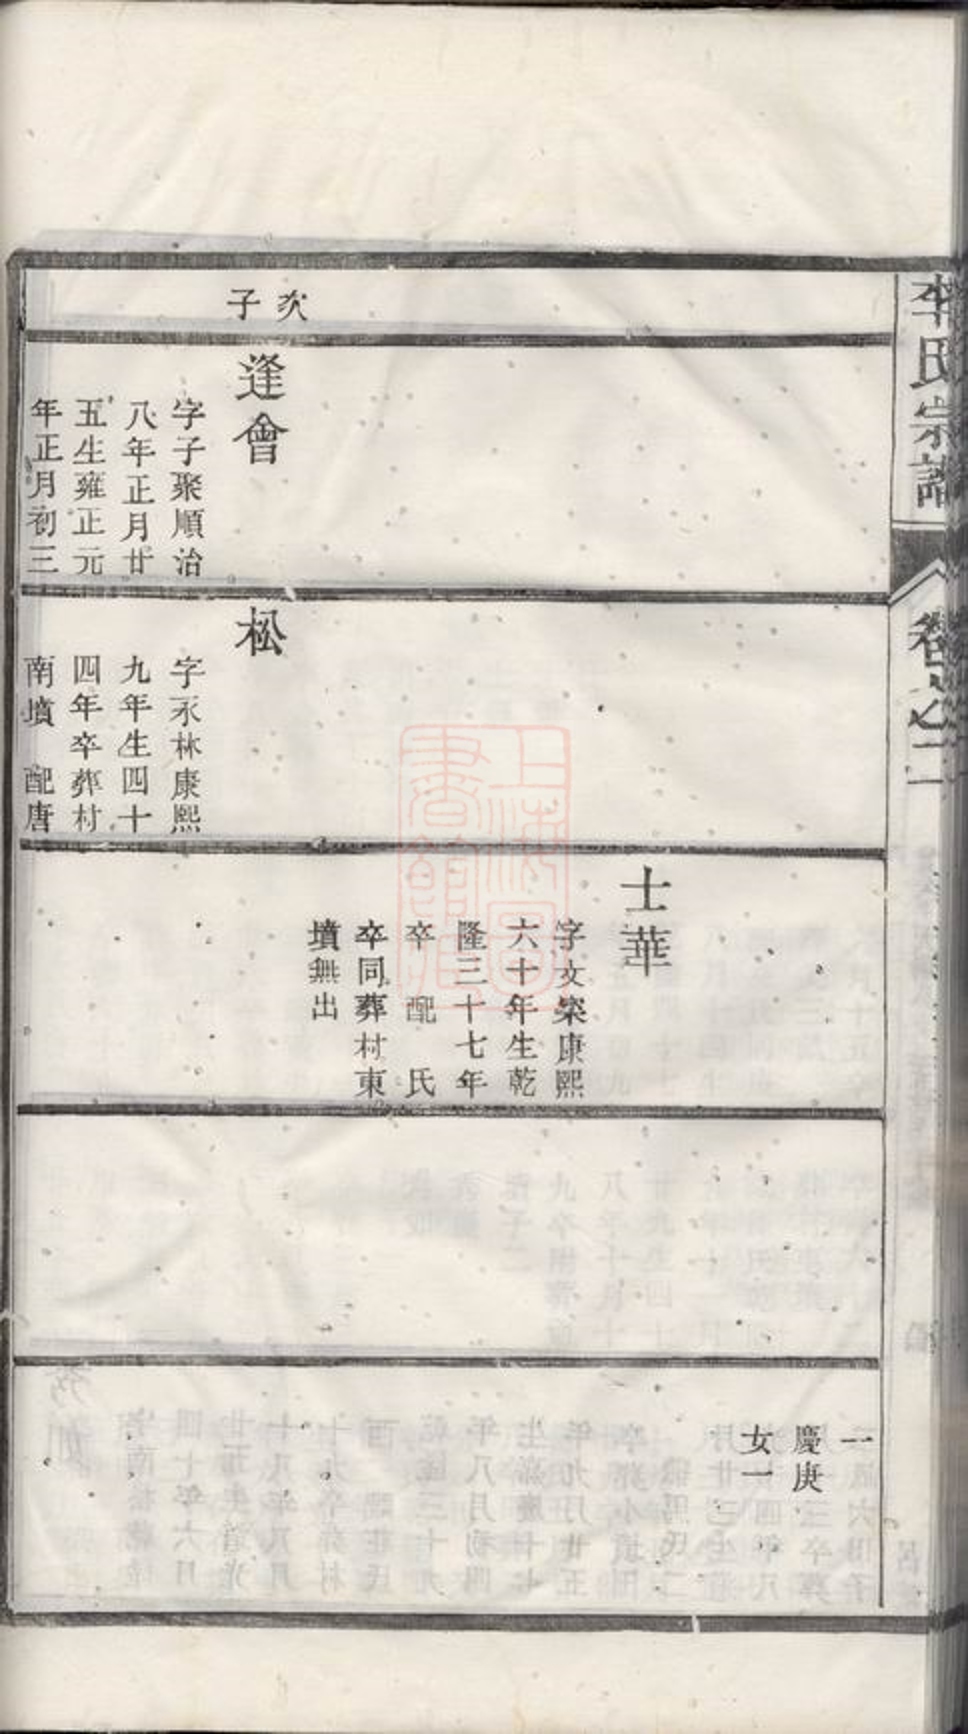 李氏宗譜
卷之二
次
子
逢會
字子聚順治
八年正月廿
五生雍正元
年正月初三
松
字永林康熙
九年生四十
四年卒葬村
南墳　配唐
士華
字文榮康熙
六十年生乾
隆三十七年
卒　配　氏
卒同葬村東
墳無出
一
慶庚
女一
上海圖書館藏